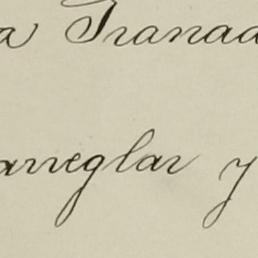 a Granad
arreglar y